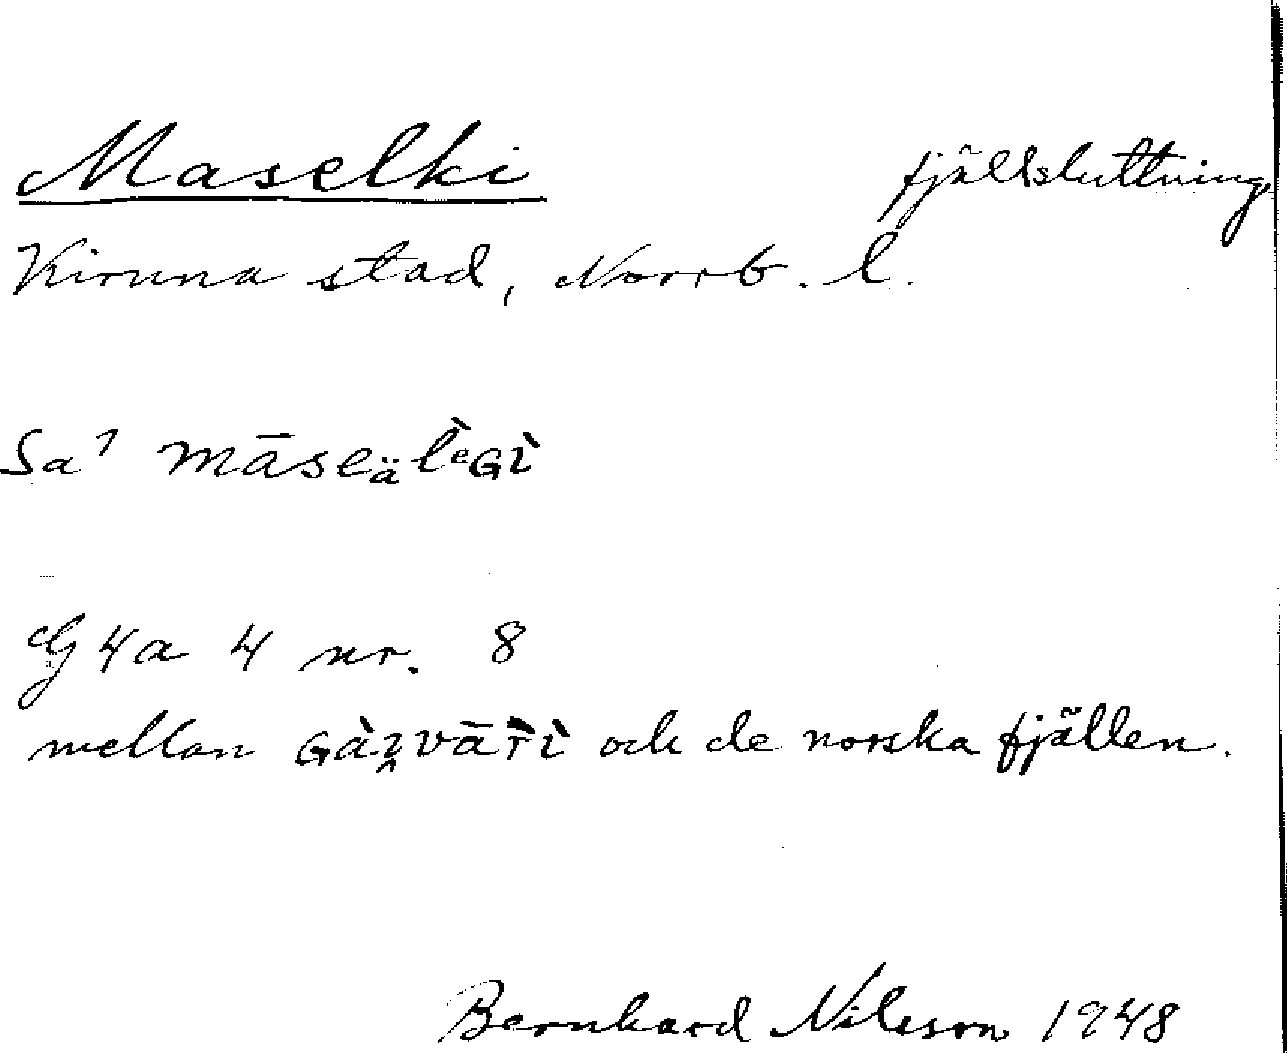 Maselki fjällsluttning
Kiruna stad, Norrb. l.
Sa
G 4a 4 nr. 8
mellan och de norska fjällen.
Bernhard Nilsson 1948